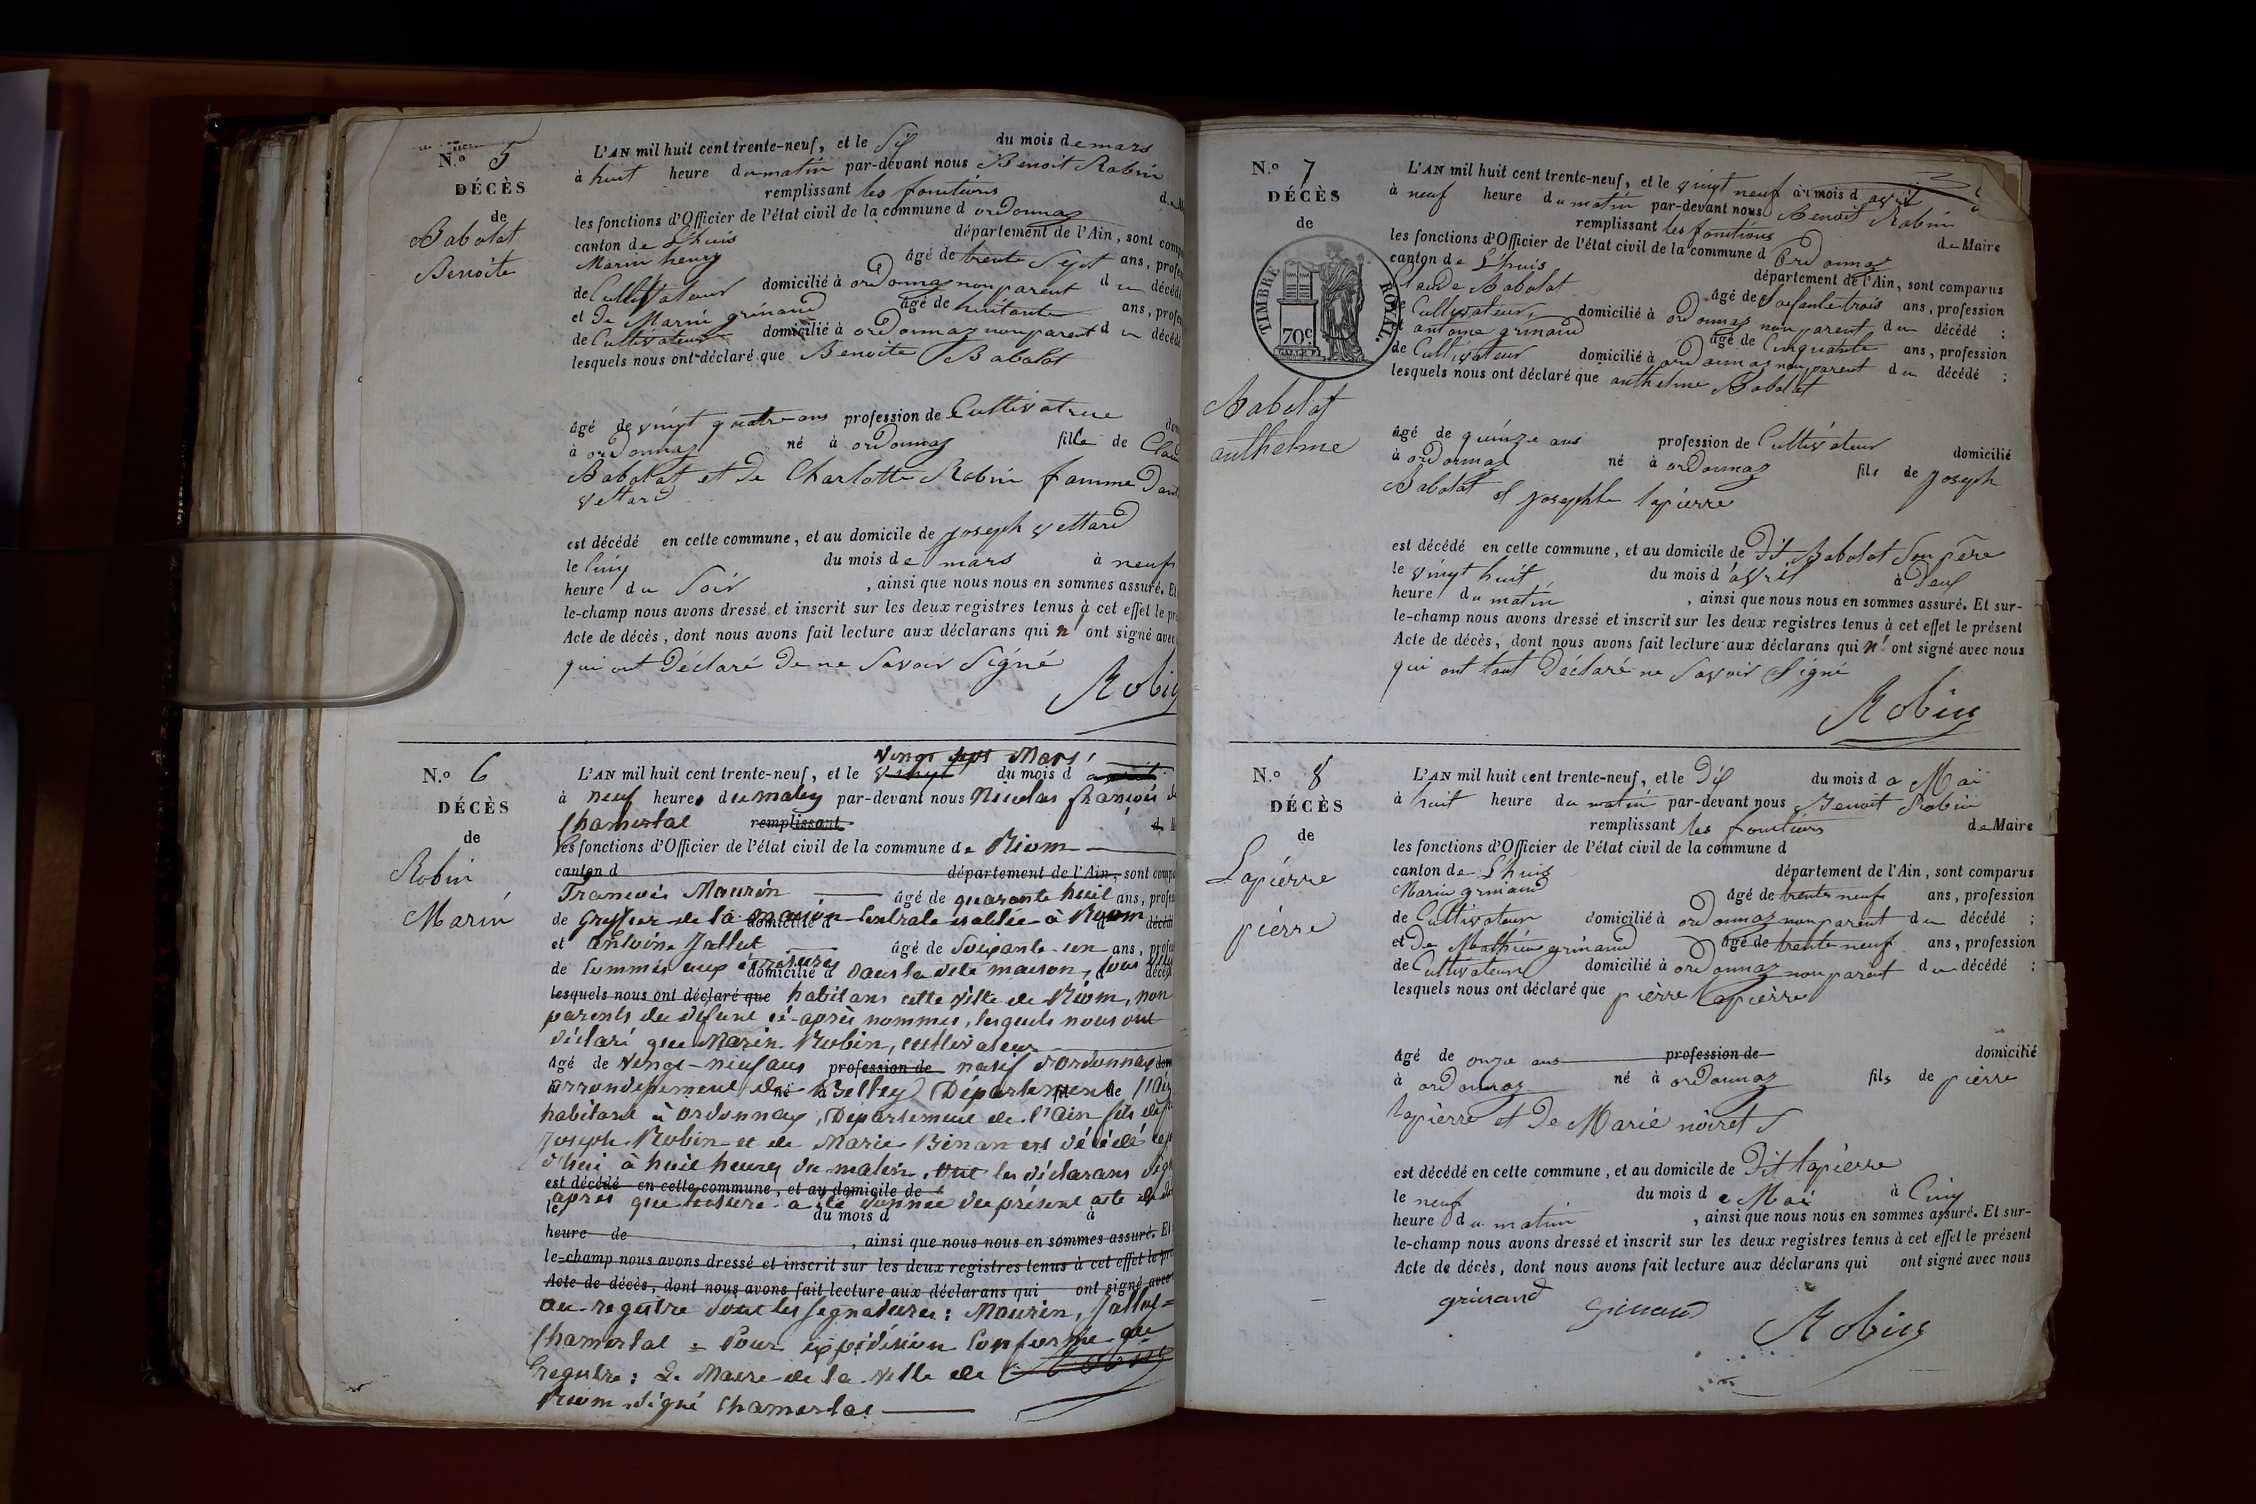 N.º 5
DÉCÈS
de
Babolat
Benoite
L'AN mil huit cent trente-neuf, et le Six du mois de mars
à huit heure du matin par-devant nous Benoit Robin
remplissant les fonctions
les fonctions d'Officier de l'état civil de la commune d ordonnaz
canton de Lhuis département de l'Ain, sont comp
Marin henry âgé de trente Sept ans, profes
de Cultivateur domicilié à ordonnaz non parent d u décédé
et De Marin grinand âgé de huitante ans, profes
de Cultivateur domicilié à ordonnaz non parent d u décédé
lesquels nous ont déclaré que Benoite Babolat
âgé de vingt quatre ans profession de Cultivatrice dom
à ordonnaz né à ordonnaz fille de Clau
Babolat et De Charlotte Robin famme Dant
vettard
est décédé en cette commune, et au domicile de joseph vettard
le Cinq du mois de mars à neuf
heure du Soir , ainsi que nous nous en sommes assuré. Et
le-champ nous avons dressé et inscrit sur les deux registres tenus à cet effet le pré
Acte de décès, dont nous avons fait lecture aux déclarans qui n' ont signé avec
qui ont Déclaré De ne Savoir Signé
Robin
N.º 6
DÉCÈS
de
Robin
Marin
Vingt sept Mars
L'AN mil huit cent trente-neuf, et le vingt du mois d avril
à neuf heures du matin par-devant nous Nicolas françois
Chamerlat remplissant
les fonctions d'Officier de l'état civil de la commune de Riom
canton d département de l'Ain, sont comp
François Maurin âgé de quarante huit ans, profes
de Greffier de la maison Centrale établie à Riom domicilié à décédé
et Antoine Jallut âgé de Soixante-un ans, profes
de Commis aux écritures domicilié à Dans la dite maison, tous deux décéd
lesquels nous ont déclaré que habitans cette ville de Riom, non
parents du défunt ci-après nommé, lesquels nous ont
déclaré que Marin Robin, cultivateur
âgé de vingt-neuf ans profession de natif d'ordonnaz dom
arrondissement de Belley Département de l'Ain
habitant à ordonnaz, Département de l'Ain fils de
Joseph Robin et de Marie Binan est décédé
d'hui à huit heures du matin. Ont les déclarans signé
est décédé en cette commune, et au domicile de
après que lecture a été donnée du présent acte
le du mois d à
heure de , ainsi que nous nous en sommes assuré. Et
le-champ nous avons dressé et inscrit sur les deux registres tenus à cet effet le pré
Acte de décès, dont nous avons fait lecture aux déclarans qui ont signé avec
au registre sont les signatures : Maurin, Jallut =
Chamerlat = Pour expédition Conforme au
registre : Le Maire de la ville de Robin
Riom signé Chamerlat
N.º 7
DÉCÈS
de
TIMBRE ROYAL.
70c
Babolat
anthelme
L'AN mil huit cent trente-neuf, et le vingt neuf du mois d avril
à neuf heure du matin par-devant nous Benoit Robin
remplissant les fonctions de Maire
les fonctions d'Officier de l'état civil de la commune d Ordonnaz
canton de Lhuis département de l'Ain, sont comparus
Claude Babolat âgé de Soixante trois ans, profession
de Cultivateur, domicilié à ordonnaz non parent d u décédé ;
et antoine grinand âgé de Cinquante ans, profession
de Cultivateur domicilié à ordonnaz non parent d u décédé ;
lesquels nous ont déclaré que anthelme Babolat
âgé de quinze ans profession de Cultivateur domicilié
à ordonnaz né à ordonnaz fils de joseph
Babolat et josephte lapierre
est décédé en cette commune, et au domicile de Dit Babolat Son père
le vingt huit du mois d'avril à Deux
heure du matin , ainsi que nous nous en sommes assuré. Et sur-
le-champ nous avons dressé et inscrit sur les deux registres tenus à cet effet le présent
Acte de décès, dont nous avons fait lecture aux déclarans qui n' ont signé avec nous
qui ont tant Déclaré ne Savoir Signé
Robin
N.º 8
DÉCÈS
de
Lapierre
pierre
L'AN mil huit cent trente-neuf, et le Dix du mois d e Mai
à huit heure du matin par-devant nous Benoit Robin
remplissant les fonctions de Maire
les fonctions d'Officier de l'état civil de la commune d
canton de Lhuis département de l'Ain, sont comparus
Marin grinand âgé de trente neuf ans, profession
de Cultivateur domicilié à ordonnaz non parent d u décédé ;
et De Mathieu grinand âgé de trente neuf ans, profession
de Cultivateur domicilié à ordonnaz non parent d u décédé ;
lesquels nous ont déclaré que pierre Lapierre
âgé de onze ans profession de domicilié
à ordonnaz né à ordonnaz fils de pierre
lapierre et De Marie noiret
est décédé en cette commune, et au domicile de Dit lapierre
le neuf du mois d e Mai à Cinq
heure du matin , ainsi que nous nous en sommes assuré. Et sur-
le-champ nous avons dressé et inscrit sur les deux registres tenus à cet effet le présent
Acte de décès, dont nous avons fait lecture aux déclarans qui ont signé avec nous
grinand grinand Robin